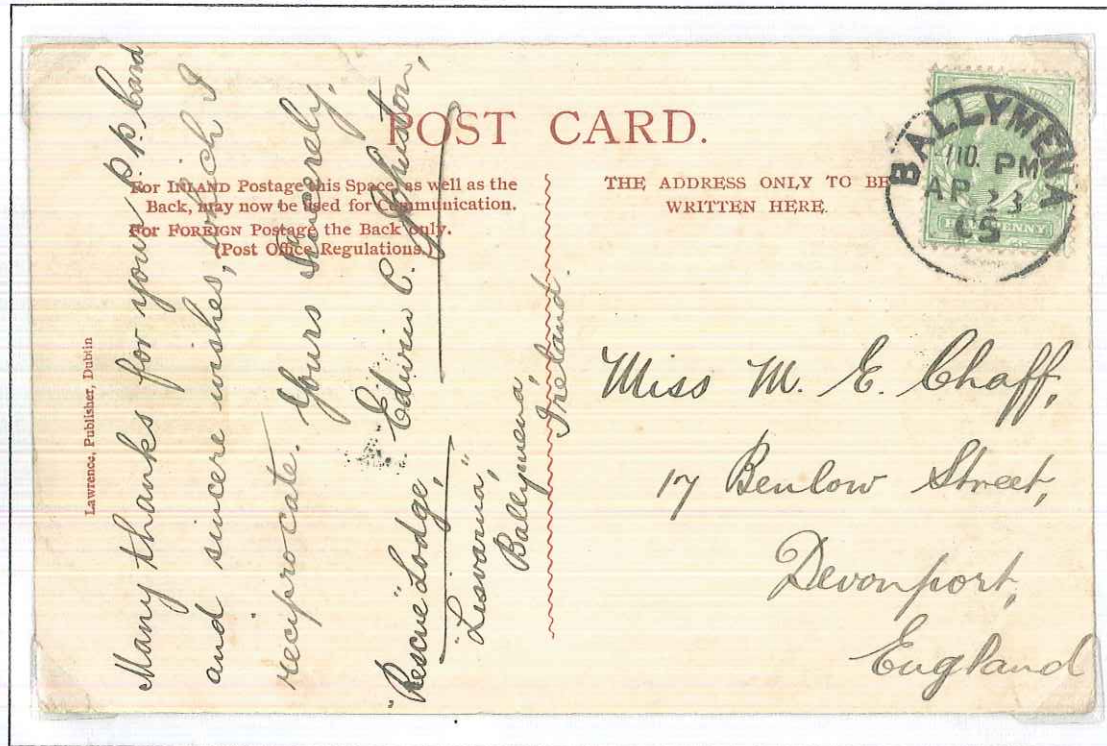 POST CARD.
For INLAND Postage this Space, as well as the
Back, may now be used for Communication.
For FOREIGN Postage the Back only.
(Post Office Regulations.)
THE ADDRESS ONLY TO BE
WRITTEN HERE.
BALLYMENA
PM
AP 23
05
HALFPENNY
Lawrence, Publisher, Dublin
Many thanks for your p.p. Card
and sincere wishes, which I
reciprocate. Yours sincerely,
Edwin C. Johnston,
"Rescue" Lodge,
"Lisvarna",
Ballymena,
Ireland.
Miss M. E. Chaff,
17 Benlow Street,
Devonport,
England